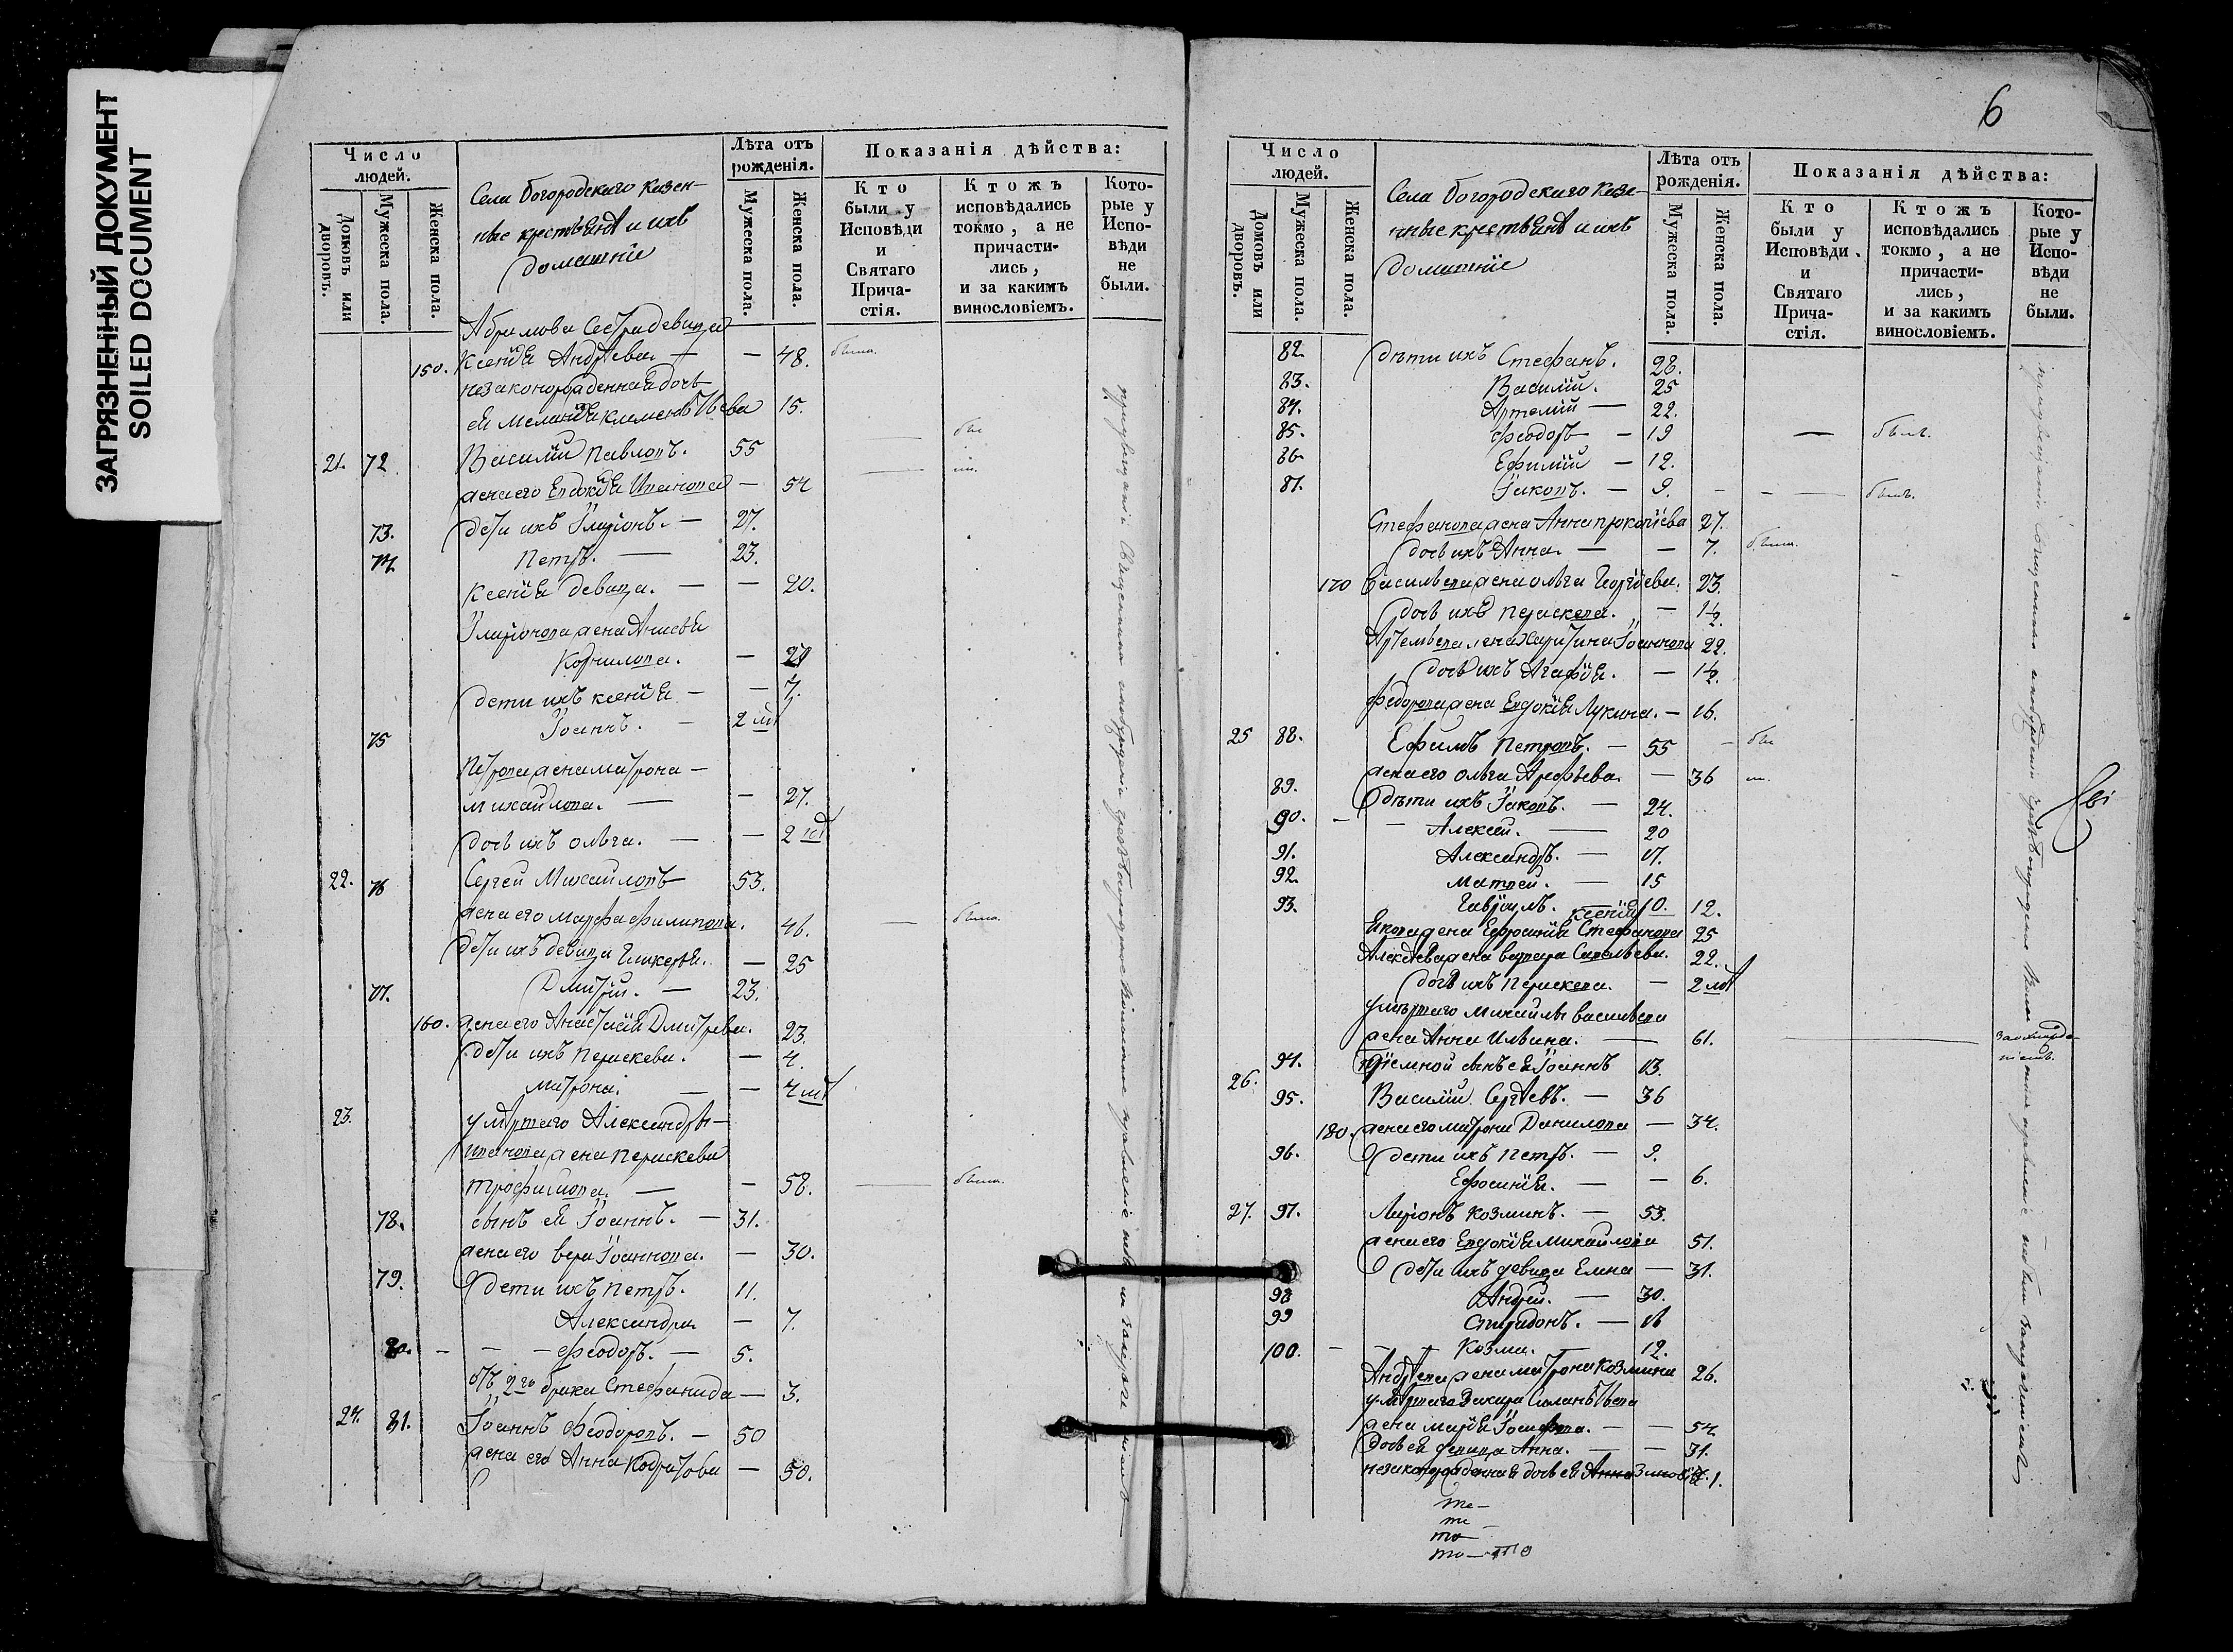 ЗАГРЯЗНЕННЫЙ ДОКУМЕНТ
SOILED DOCUMENT
Число людей.
Домовъ или дворовъ.
Мужеска пола.
Женска пола.
Села Богородскаго казен-
ные крестьянѣ и ихъ
домашніе
Лѣта отъ рожденія.
Мужеска пола.
Женска пола.
Показанія дѣйства:
Кто были у Исповѣди и Святаго Прича-стія.
Ктожъ исповѣдались токмо, а не причасти-лись, и за какимъ винословіемъ.
Кото-рые у Испо-вѣди не были.
Абрамова сестра девица
150. Ксенія Андреева — — 48. была.
незаконорожденная дочь
ея Меланія Климентьева 15.
21. 72 Василий Павловъ. 55 — был
жена его Евдокія Иванова — 54 —
73. дети ихъ Иларіонъ. — 27.
74. Петръ. — 23.
Ксенія девица. — — 20.
Иларіонова жена Анисья
Корнилова. — 29
дети ихъ Ксенія — — 7.
75 Іоаннъ. — 2 мѣ
Петрова жена Матрона —
Михайлова. — — 27.
дочь ихъ Ольга. — — 2 мѣ
22. 76 Сергей Михайловъ 53.
жена его Марфа Филипова. 46. — была.
дети ихъ девица Гликерья. — 25
77. Дмитрій. — 23.
160. жена его Анастасія Дмитрева. 23.
дети ихъ Параскева. — 4.
Матрона. — — 4 мѣ
23. умершаго Александра —
Иванова жена Параскева
Трофимова. — — 58. — была.
78. сынъ ея Іоаннъ. — 31.
жена его Вера Іоаннова. — 30.
79. дети ихъ Петръ. 11.
Александра — 7.
80. — — — Феодоръ. — 5.
отъ 2го брака Стефанида — 3.
24. 81. Іоаннъ Феодоровъ. — 50
жена его Анна Кодратова — 50.
6
Число людей.
Домовъ или дворовъ.
Мужеска пола.
Женска пола.
Села Богородскаго казе-
нные крестьянѣ и ихъ
домашніе
Лѣта отъ рожденія.
Мужеска пола.
Женска пола.
Показанія дѣйства:
Кто были у Исповѣди и Святаго Прича-стія.
Ктожъ исповѣдались токмо, а не причасти-лись, и за какимъ винословіемъ.
Кото-рые у Испо-вѣди не были.
82. дѣти ихъ Стефанъ. 28.
83. Василий. 25
84. Артемій — 22.
85. Феодоръ — 19 — былъ.
86 Ефимій — 12.
87. Іаковъ. — 9. — — — былъ.
Стефанова жена Анна Прокопіева 27.
дочь ихъ Анна. — — 7. была.
170 Васильева жена Ольга Георгіева. 23.
дочь ихъ Параскева. — 1½.
Артемьева жена Харитина Іоаннова 22.
дочь ихъ Агафія. — 1½.
Федорова жена Евдокія Лукина. — 16.
25 88. Ефимъ Петровъ. — 55 — был
жена его Ольга Арефьева. — 36
89. дѣти ихъ Іаковъ. — 24.
90. — — Алексѣй. — 20
91. Александръ. — 17.
92. Матвей. — 15
93. Гавріилъ. — 10.
Ксенія 12.
Якова жена Ефросинія Стефанова 25
Алексѣева жена Варвара Савельева. 22.
дочь ихъ Параскева. — 2 мѣ
умершаго Михайлы Васильева
жена Анна Ильина. — 61. —
94. Приемной сынъ ея Іоаннъ 13.
26. 95. Василій Сергѣевъ. — 36
180. жена его Матрона Данилова — 34.
96. дети ихъ Петръ. — 9.
Ефросинія. — — 6.
27. 97. Ларіонъ Козминъ. — 53.
жена его Евдокія Михайлова 51.
дети ихъ девица Елена — 31.
98 Андрей. — 30.
99 Спиридонъ. — 16
100. — — Козма. — 12.
Андреева жена Матрона Козмина 26.
умершаго Захара Силантьева
жена Марія Іосифова. — — 54.
дочь ея девица Анна. — — 31.
незаконорожденная дочь ея Зиновія 1.
то —